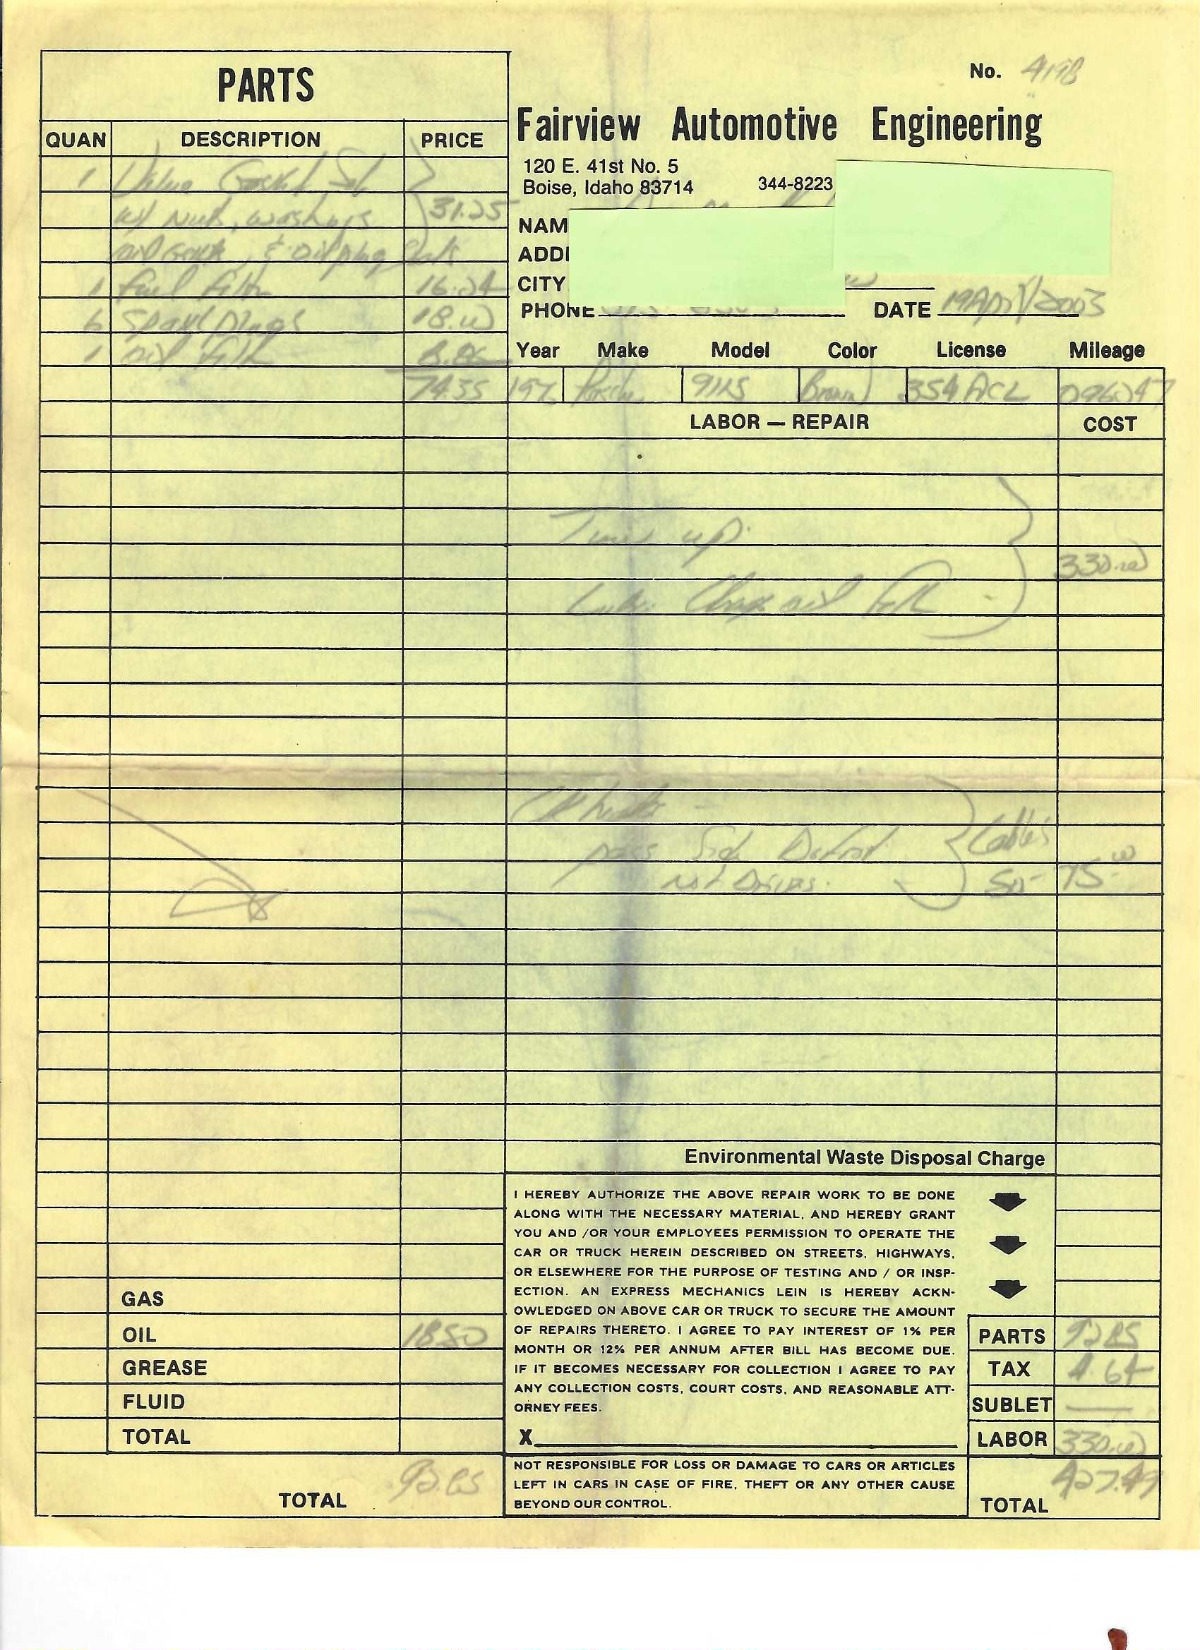 PARTS
QUAN DESCRIPTION PRICE
1 Valve Gasket Set
w/ Nuts, washers 31.25
& oil plug
1 Fuel Filter 16.24
6 Spark Plugs 18.00
1 oil Filter
74.35
No. 4198
Fairview Automotive Engineering
120 E. 41st No. 5
Boise, Idaho 83714 344-8223
NAM
ADD
CITY
PHONE DATE 19 April 2003
Year Make Model Color License Mileage
197 Porsche 911S Brown 354ACL 096047
LABOR — REPAIR COST
Tune up.
330.00
Lube, Change oil Filter
pass Side Defrost Cables
not 50- 75.00
Environmental Waste Disposal Charge
I HEREBY AUTHORIZE THE ABOVE REPAIR WORK TO BE DONE
ALONG WITH THE NECESSARY MATERIAL, AND HEREBY GRANT
YOU AND /OR YOUR EMPLOYEES PERMISSION TO OPERATE THE
CAR OR TRUCK HEREIN DESCRIBED ON STREETS, HIGHWAYS,
OR ELSEWHERE FOR THE PURPOSE OF TESTING AND / OR INSP-
ECTION. AN EXPRESS MECHANICS LEIN IS HEREBY ACKN-
OWLEDGED ON ABOVE CAR OR TRUCK TO SECURE THE AMOUNT
OF REPAIRS THERETO. I AGREE TO PAY INTEREST OF 1% PER
MONTH OR 12% PER ANNUM AFTER BILL HAS BECOME DUE.
IF IT BECOMES NECESSARY FOR COLLECTION I AGREE TO PAY
ANY COLLECTION COSTS, COURT COSTS, AND REASONABLE ATT-
ORNEY FEES.
X
NOT RESPONSIBLE FOR LOSS OR DAMAGE TO CARS OR ARTICLES
LEFT IN CARS IN CASE OF FIRE, THEFT OR ANY OTHER CAUSE
BEYOND OUR CONTROL.
GAS
OIL 18.50
GREASE
FLUID
TOTAL
TOTAL 92.85
PARTS 92.85
TAX 4.64
SUBLET —
LABOR 330.00
TOTAL 427.49